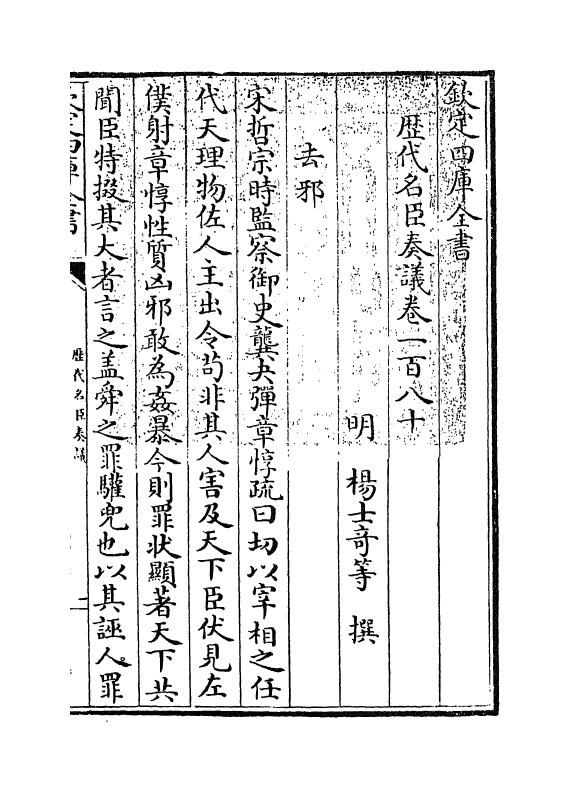 欽定四庫全書
歷代名臣奏議卷一百八十
明 楊士奇等 撰
去邪
宋哲宗時監察御史龔夬彈章惇疏曰切以宰相之任
代天理物佐人主出令苟非其人害及天下臣伏見左
僕射章惇性質凶邪敢為姦暴今則罪狀顯著天下共
聞臣特掇其大者言之盖舜之罪驩兜也以其誣人罪
欽定四庫全書
歷代名臣奏議
一